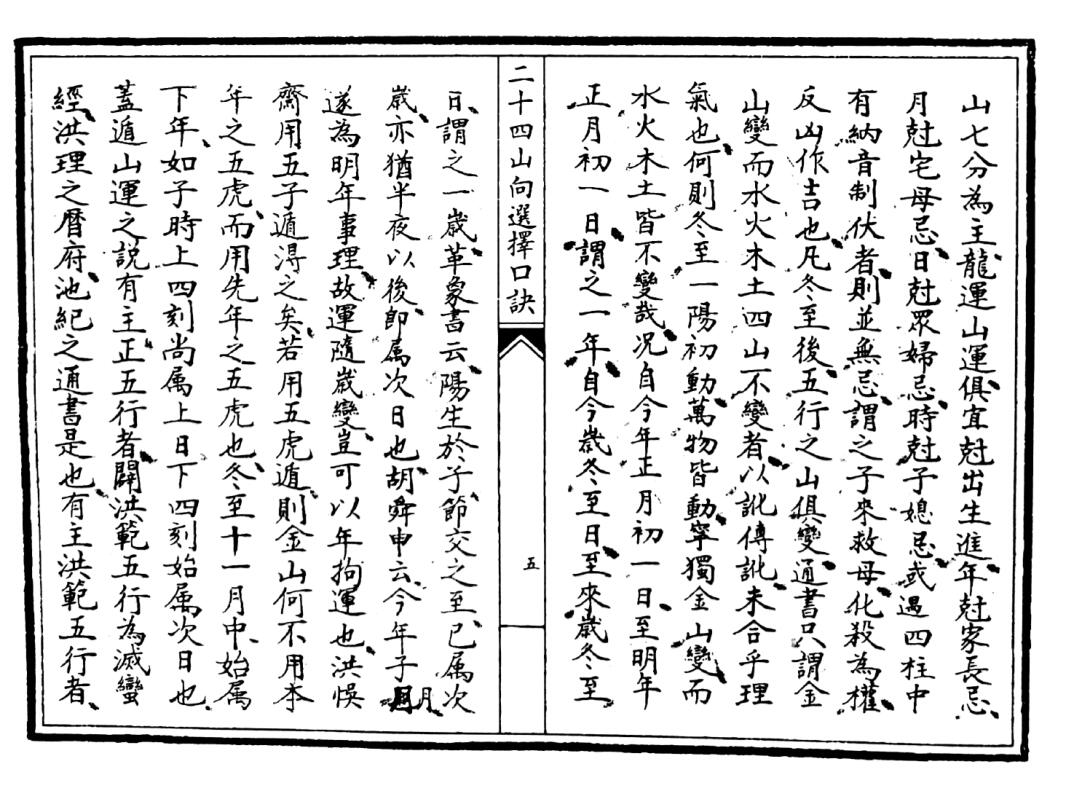 山七分為主龍運山運俱宜尅出生進年尅家長忌
月尅宅母忌日尅眾婦忌時尅子媳忌或遇四柱中
有納音制伏者則並無忌謂之子來救母化殺為權
反凶作吉也凡冬至後五行之山俱變通書只謂金
山變而水火木土四山不變者以訛傳訛未合乎理
氣也何則冬至一陽初動萬物皆動寧獨金山變而
水火木土皆不變哉况自今年正月初一日至明年
正月初一日謂之一年自今歲冬至日至來歲冬至
二十四山向選擇口訣
五
日謂之一歲革象書云陽生於子節交之至已属次
歲亦猶半夜以後即属次日也胡舜申云今年子月
遂為明年事理故運隨歲變豈可以年拘運也洪悞
齋用五子遁淂之矣若用五虎遁則金山何不用本
年之五虎而用先年之五虎也冬至十一月中始属
下年如子時上四刻尚属上日下四刻始属次日也
蓋遁山運之説有主正五行者闢洪範五行為滅蠻
經洪理之曆府池紀之通書是也有主洪範五行者